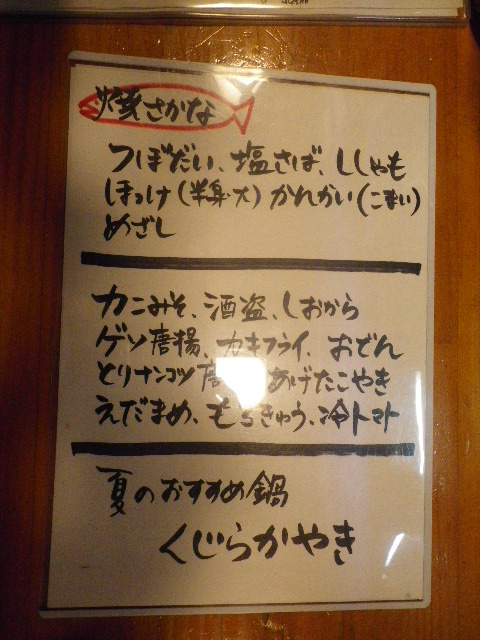 焼さかな
つぼだい、塩さば、ししゃも
ほっけ(半身・大)かれかい(こまい)
めざし
カニみそ、酒盗、しおから
ゲソ唐揚、カキフライ、おでん
とりナンコツ唐 あげたこやき
えだまめ、もろきゅう、冷トマト
夏のおすすめ鍋
くじらかやき